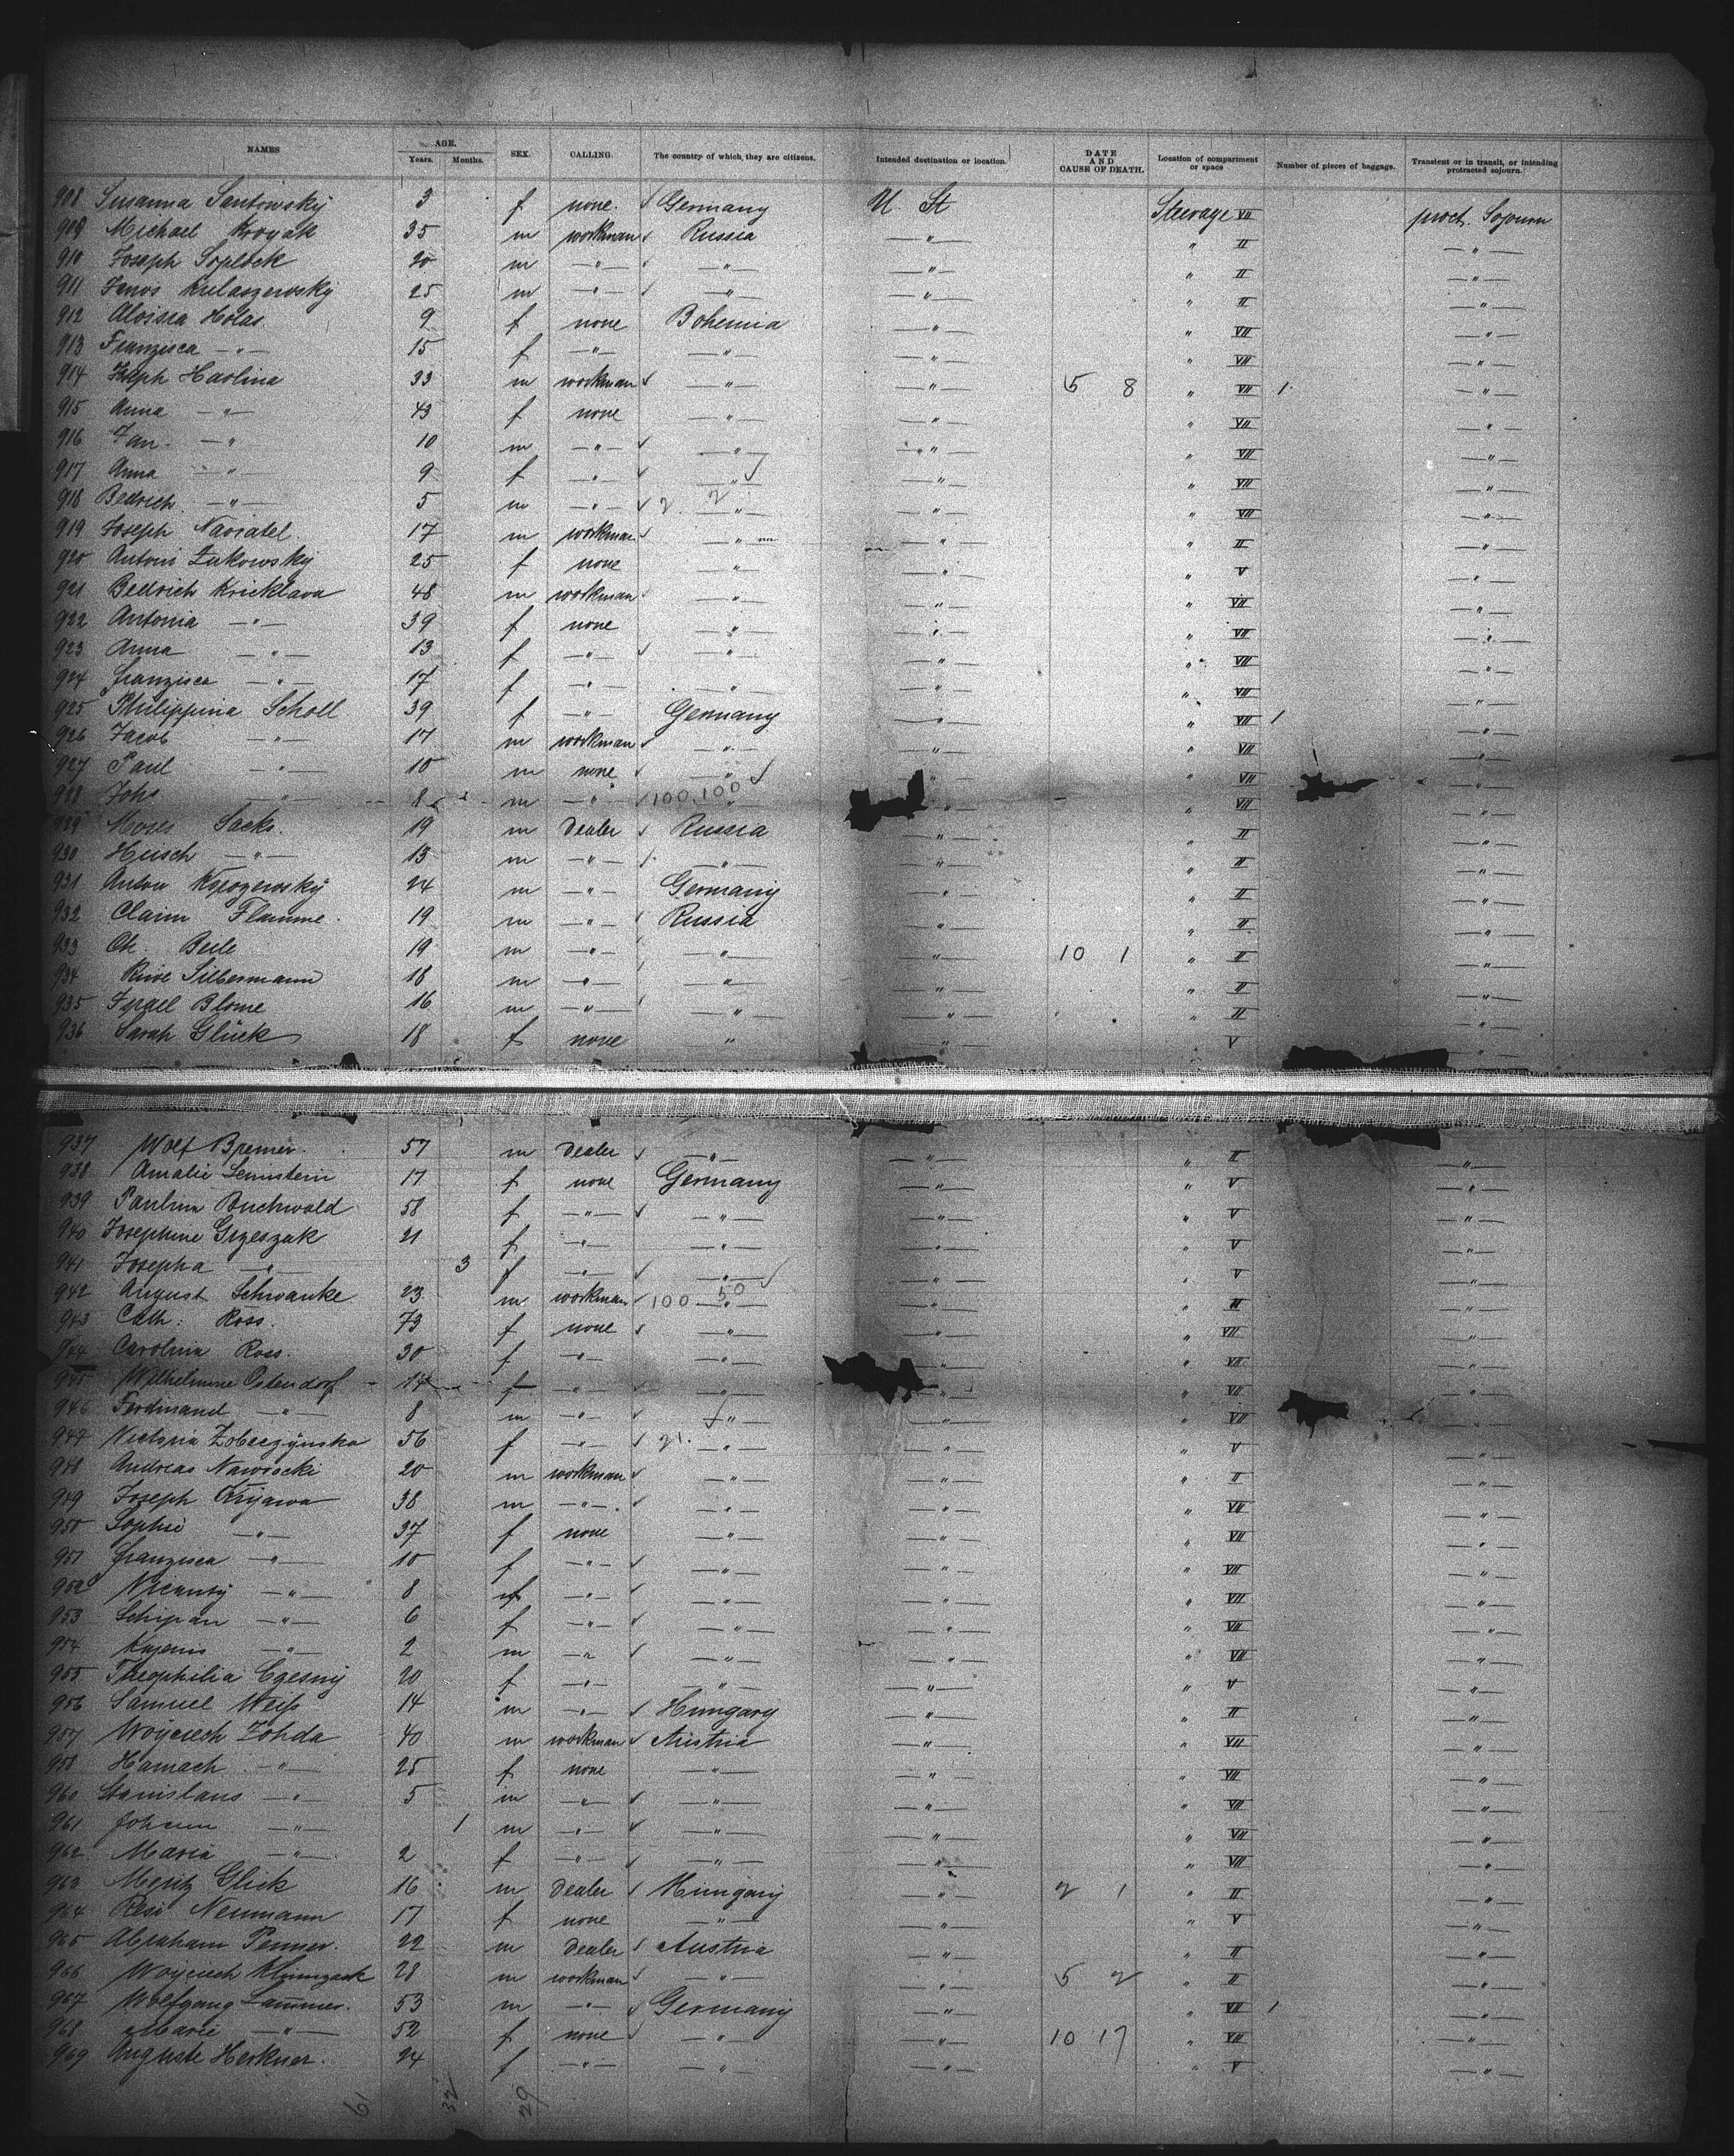 NAMES AGE. Years. Months. SEX. CALLING. The country of which, they are citizens. Intended destination or location. DATE AND CAUSE OF DEATH. Location of compartment or space Number of pieces of baggage. Transient or in transit, or intending protracted sojourn.
908 Susanna Santowsky 3 f none. ✓ Germany U. St Steerage VII proct. Sojourn
909 Michael Kroyak 35 m workman ✓ Russia —"— " II —"—
910 Joseph 20 m —"— ✓ —"— —"— " II —"—
911 Janos Kulaszewsky 25 m —"— ✓ —"— —"— " II —"—
912 Aloisia Holas 9 f none Bohemia —"— " VII —"—
913 Franzisca —"— 15 f —"— —"— —"— " VII —"—
914 Joseph Havlina 33 m workman ✓ —"— —"— 5 8 " VII 1 —"—
915 Anna —"— 43 f none —"— —"— " VII —"—
916 Jan —"— 10 m —"— ✓ —"— —"— " VII —"—
917 Anna —"— 9 f —"— ✓ —"— ✓ —"— " VII —"—
918 Bedrich —"— 5 m —"— ✓ 2 2 —"— —"— " VII —"—
919 Joseph Navratel 17 m workman ✓ —"— —"— " II —"—
920 Antoni Zukowsky 25 f none —"— —"— " V —"—
921 Bedrich Kricklava 48 m workman —"— —"— " VII —"—
922 Antonia —"— 39 f none —"— —"— " VII —"—
923 Anna —"— 13 f —"— ✓ —"— —"— " VII —"—
924 Franzisca —"— 17 f —"— —"— —"— " VII —"—
925 Philippina Scholl 39 f —"— Germany —"— " VII 1 —"—
926 Jacob —"— 17 m workman ✓ —"— —"— " VII —"—
927 Paul —"— 10 m none ✓ —"— ✓ —"— " VII —"—
928 Johs —"— 8 m —"— ✓ 100,100 —"— —"— " VII —"—
929 Moses Sacks. 19 m Dealer ✓ Russia —"— " II —"—
930 Hersch —"— 13 m —"— ✓ —"— —"— " II —"—
931 Anton 24 m —"— Germany —"— " II —"—
932 Claim Flamme. 19 m —"— ✓ Russia —"— " II —"—
933 Ch. Beile 19 m —"— —"— —"— 10 1 " II —"—
934 Rive Silbermann 18 m —"— ✓ —"— —"— " II —"—
935 Israel Blome 16 m —"— ✓ —"— —"— " II —"—
936 Sarah Glück 18 f none " —"— " V —"—
937 Wolf Bremer. 57 m Dealer ✓ —"— —"— " II —"—
938 Amalie 17 f none Germany —"— " V —"—
939 Paulina Buchwald 58 f —"— ✓ —"— —"— " V —"—
940 Josephine Grzeszak 21 f —"— —"— —"— " V —"—
941 Josepha —"— 3 f —"— ✓ —"— ✓ —"— " V —"—
942 August Schwanke 23 m workman ✓ 100 50 —"— —"— " II —"—
943 Cath: Ross. 73 f none ✓ —"— —"— " VII —"—
944 Carolina Ross. 30 f —"— —"— —"— " VII —"—
945 Wilhelmine Ostendorf 14 f —"— ✓ —"— —"— " VII —"—
946 Ferdinand —"— 8 m —"— ✓ —"— —"— " VII —"—
947 Victoria Zobeczynska 56 f —"— ✓ 21. —"— —"— " V —"—
948 Andreas Nawrocki 20 m workman ✓ —"— —"— " II —"—
949 Joseph Kujawa 38 m —"— ✓ —"— —"— " VII —"—
950 Sophie —"— 37 f none —"— —"— " VII —"—
951 Franzisca —"— 10 f —"— ✓ —"— —"— " VII —"—
952 —"— 8 —"— ✓ —"— —"— " VII —"—
953 Schipan —"— 6 f —"— ✓ —"— —"— " VII —"—
954 —"— 2 m —"— ✓ —"— —"— " VII —"—
955 Theophilia Czesny 20 f —"— —"— —"— " V —"—
956 Samuel Weiß 14 m —"— ✓ Hungary —"— " II —"—
957 Woyciech Zohda 40 m workman ✓ Austria —"— " VII —"—
958 Hamach —"— 25 f none —"— —"— " VII —"—
960 Stanislaus —"— 5 m —"— ✓ —"— —"— " VII —"—
961 Johann —"— 1 m —"— ✓ —"— —"— " VII —"—
962 Maria —"— 2 f —"— ✓ —"— —"— " VII —"—
963 Moritz Glick 16 m Dealer ✓ Hungary —"— 2 1 " II —"—
964 Resi Neumann 17 f none —"— —"— " V —"—
965 Abraham Penner. 22 m Dealer ✓ Austria —"— " II —"—
966 Woyciech Klimczack 28 m workman ✓ —"— —"— 5 2 " II —"—
967 Wolfgang Lammer. 53 m —"— ✓ Germany —"— " VII 1 —"—
968 Marie —"— 52 f none ✓ —"— —"— 10 17 " VII —"—
969 Auguste Herkner. 24 f —"— —"— —"— " V —"—
61 32 29